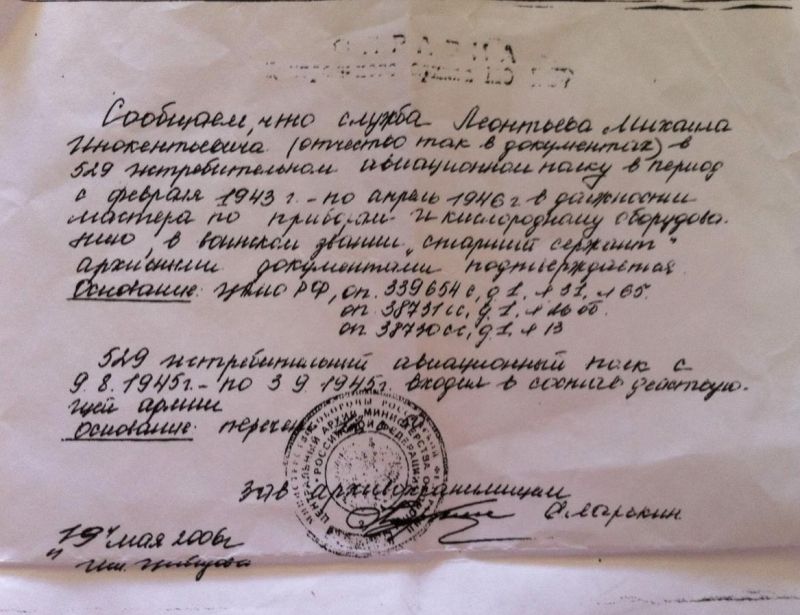 Сообщаем, что служба Леонтьева Михаила
Инокентьевича (отчество так в документах) в
529 истребительном авиационном полку в период
с февраля 1943 г. - по апрель 1946 г в должности
мастера по приборам и кислородному оборудова-
нию, в воинском звании „старший сержант"
архивными документами подтверждается
Основание: ЦАМО РФ, оп. 339654 с, д 1, л 31, л 65.
оп. 38731 сс, д. 1, л 26 об.
оп 38730 сс, д 1, л 13
529 истребительный авиационный полк с
9. 8. 1945г. - по 3 9. 1945г. входил в состав действую-
щей армии
Основание: перечень
ЦЕНТРАЛЬНЫЙ АРХИВ МИНИСТЕРСТВА ОБОРОНЫ
РОССИЙСКОЙ ФЕДЕРАЦИИ
Зав архивохранилищем
19 мая 2006г
исп.